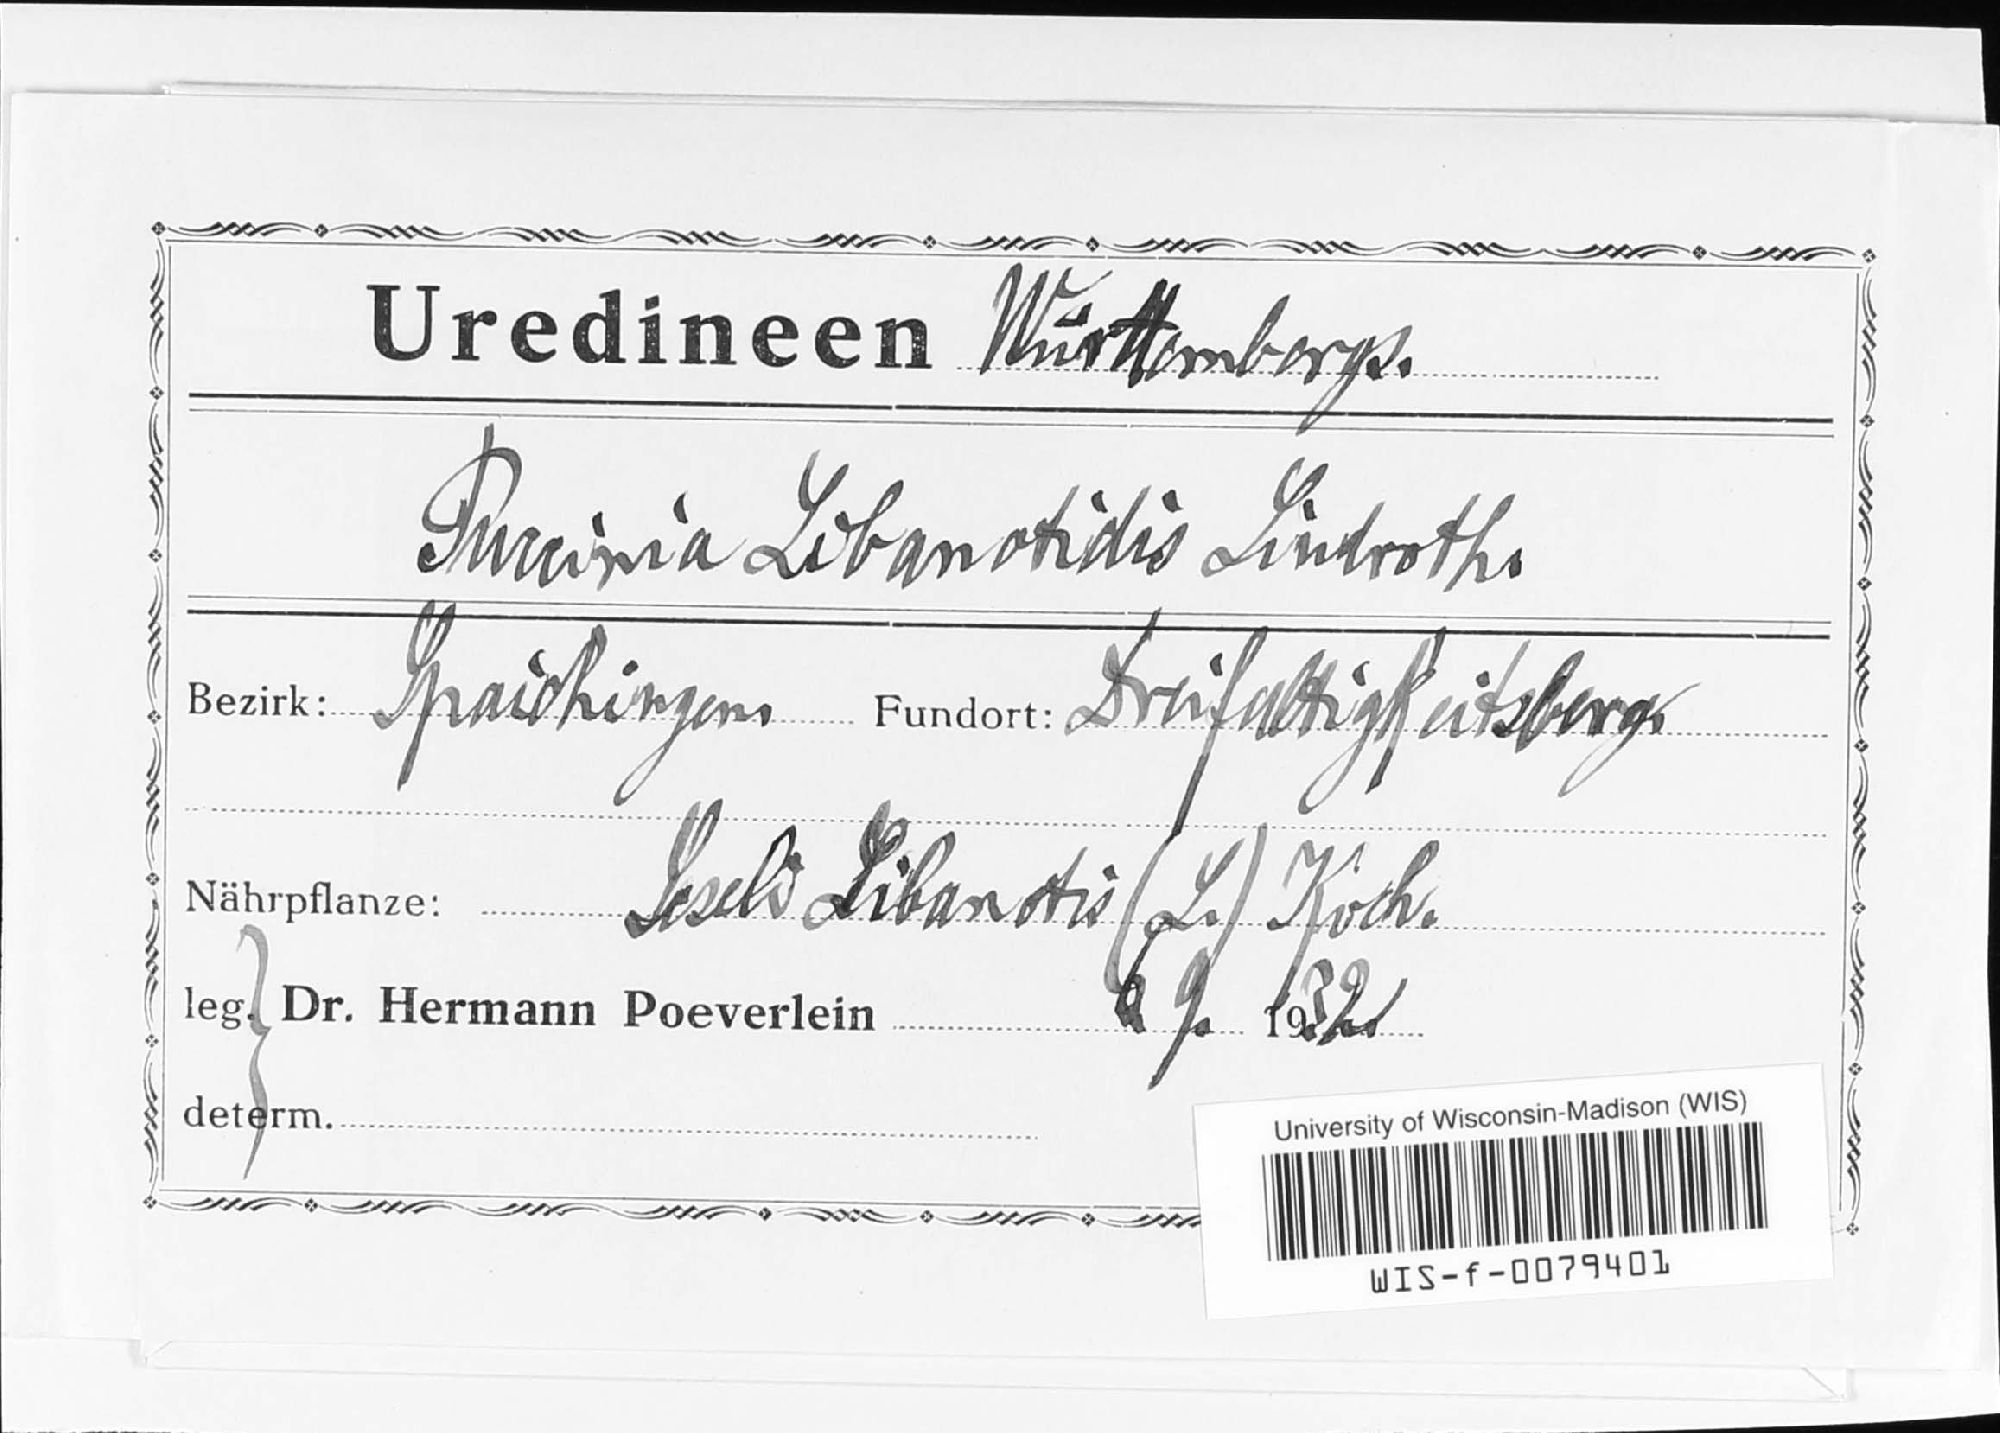 Uredineen Württembergs.
Puccinia Libanotidis Lindroth.
Bezirk: Spaichingen. Fundort: Dreifaltigkeitsberg.
Nährpflanze: Seseli Libanotis (L.) Koch.
leg. Dr. Hermann Poeverlein 9. 1932.
determ.
University of Wisconsin-Madison (WIS)
WIS-f-0079401